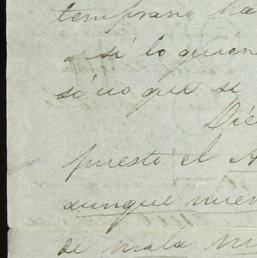 temprano ha
a si lo quien
si uo que se
Dic
puesto el A
aunque nuev
de mala m